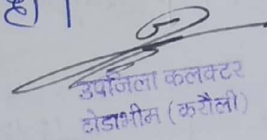 है।
उपजिला कलक्टर
टोडाभीम (करौली)